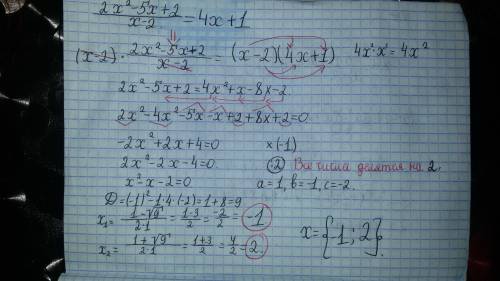 (2x²-5x+2)/(x-2) = 4x+1
(x-2)·(2x²-5x+2)/(x-2) = (x-2)(4x+1) 4x²·x¹=4x²
2x²-5x+2=4x²+x-8x-2
2x²-4x²-5x-x+2+8x+2=0
-2x²+2x+4=0 ×(-1)
2x²-2x-4=0 :2 Все числа делятся на 2.
x²-x-2=0 a=1, b=-1, c=-2.
D=(-1)²-1·4·(-2)=1+8=9
x₁=(1-√9)/(2·1)=(1-3)/2=-2/2=-1
x₂=(1+√9)/(2·1)=(1+3)/2=4/2=2. x={1;2}.